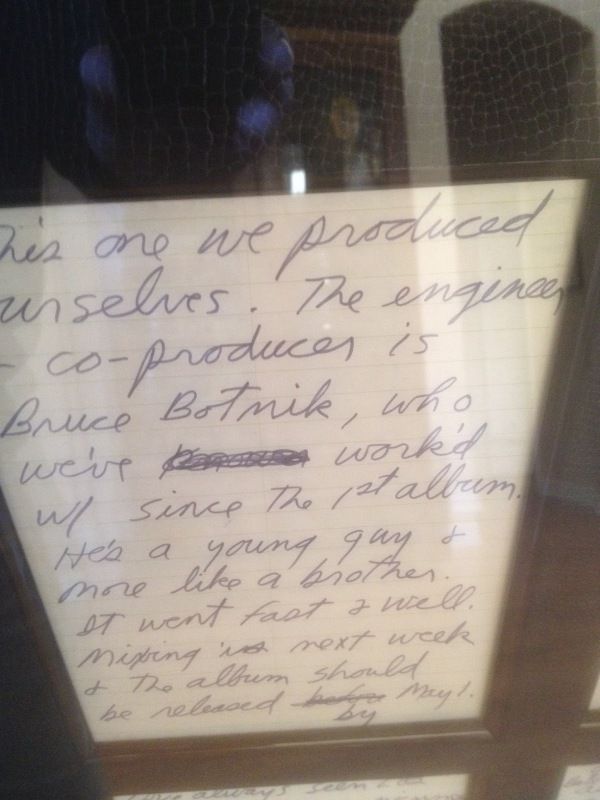 This one we produced
ourselves. The engineer
- co-producer is
Bruce Botnik, who
we've work'd
w/ since the 1st album.
He's a young guy &
more like a brother.
It went fast & well.
Mixing is next week
& the album should
be released before May 1.
by
always seen